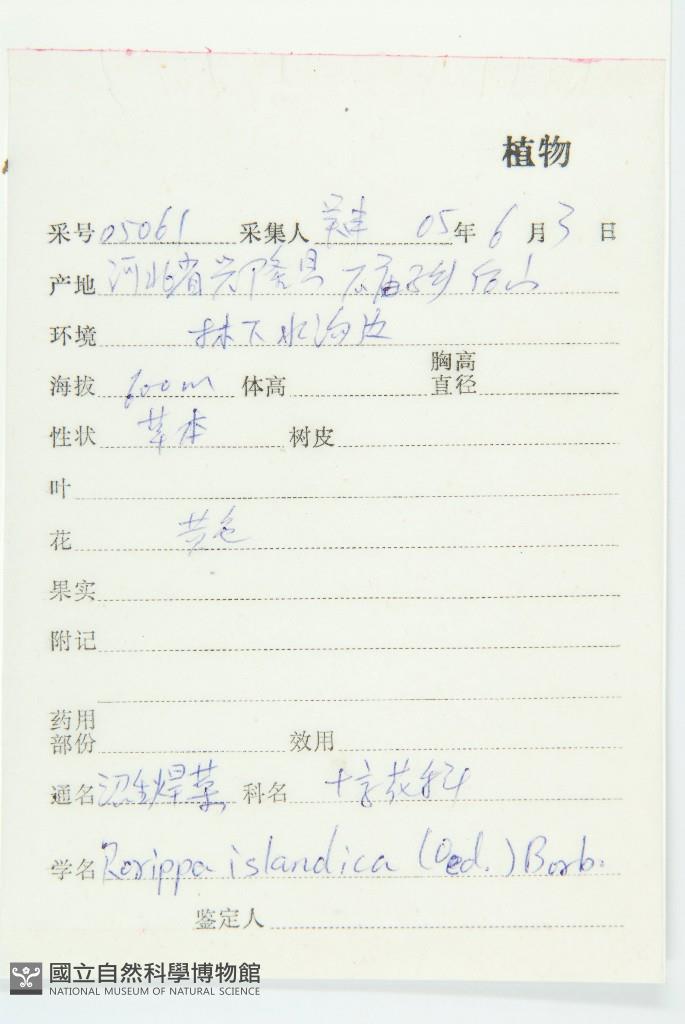 植物
采号 05061 采集人 05年 6月 3日
产地 河北省兴隆县 石庙子乡 后山
环境 林下水沟边
海拔 600m 体高 胸高直径
性状 草本 树皮
叶
花 黄色
果实
附记
药用部份 效用
通名 沼生焊菜 科名 十字花科
学名 Rorippa islandica (Oed.) Borb.
鉴定人
國立自然科學博物館
NATIONAL MUSEUM OF NATURAL SCIENCE